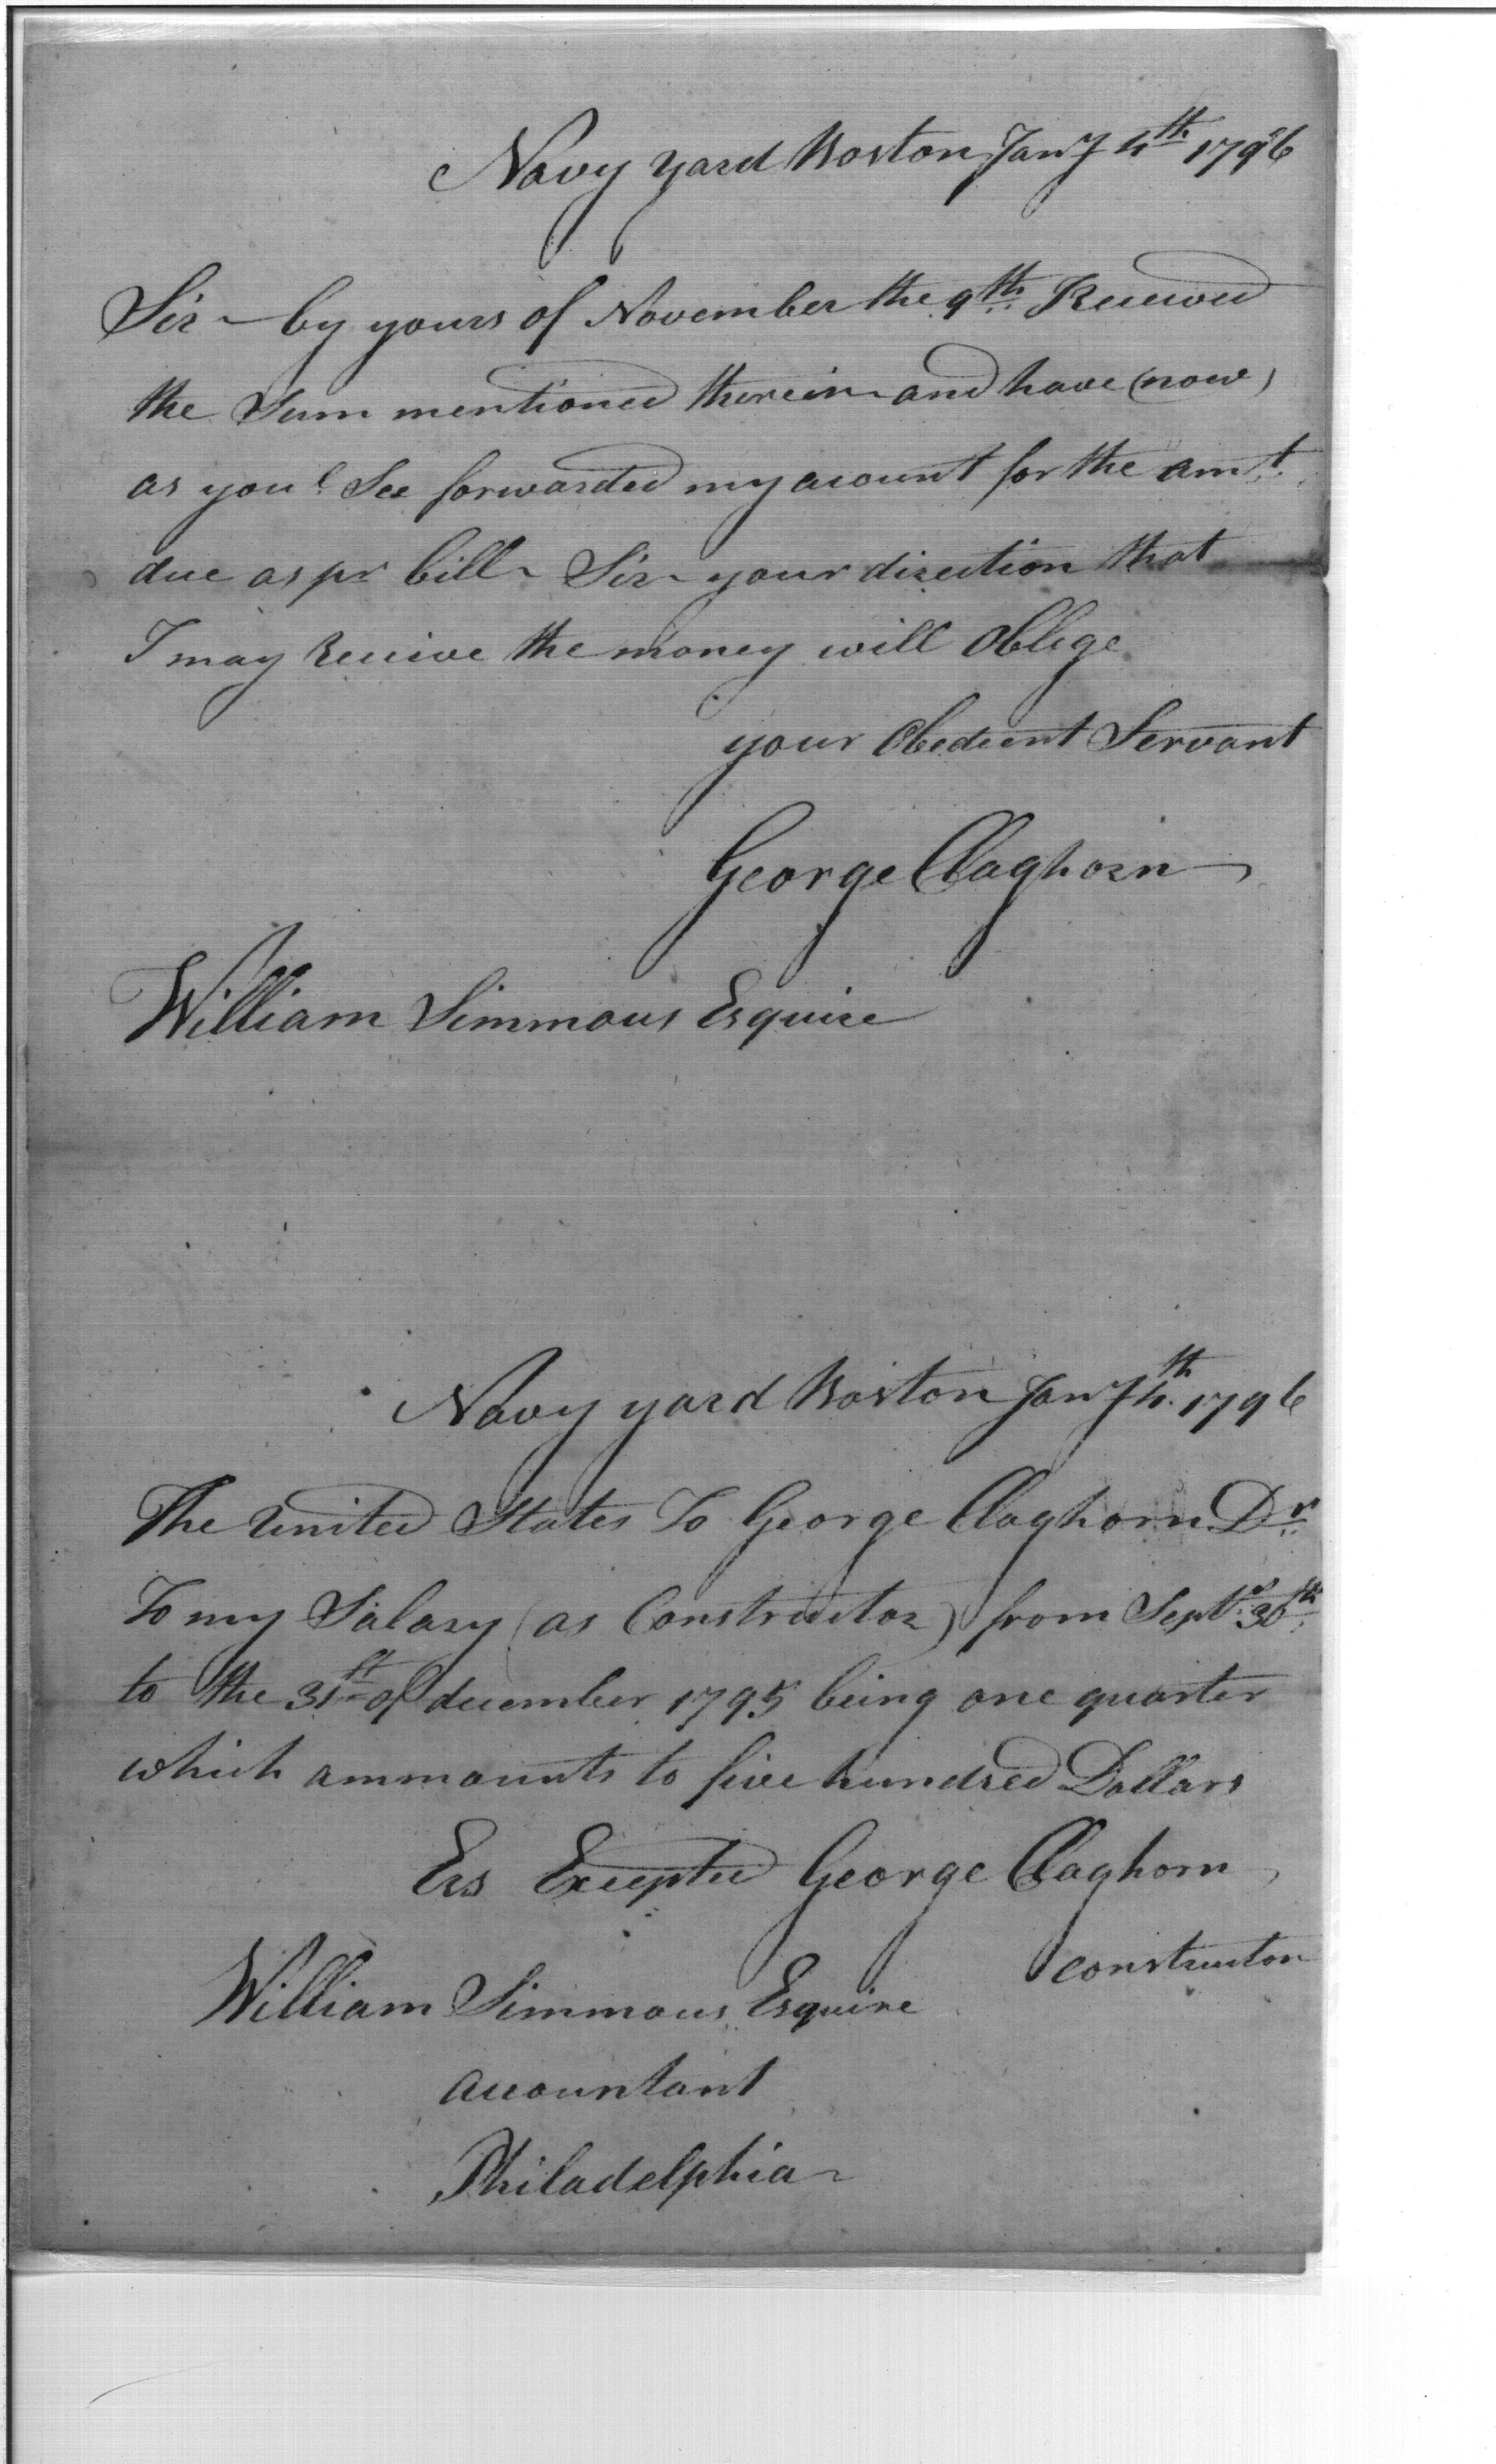 Navy yard Boston Jany 4th 1796
Sir - by yours of November the 9th Received
the Sum mentioned therein and have (now)
as youl See forwarded my acount for the amt.
due as pr bill - Sir - your direction that
I may Receive the money will Oblige
your Obedient Servant
George Claghorn
William Simmons Esquire
Navy yard Boston Jany 4th. 1796
The United States To George Claghorn Dr.
To my Salary (as Constructor) from Septr. 30th.
to the 31st of december 1795 being one quarter
which ammounts to five hundred Dollars
Ers Excepted George Claghorn
constructor
William Simmons Esquire
accountant
Philadelphia